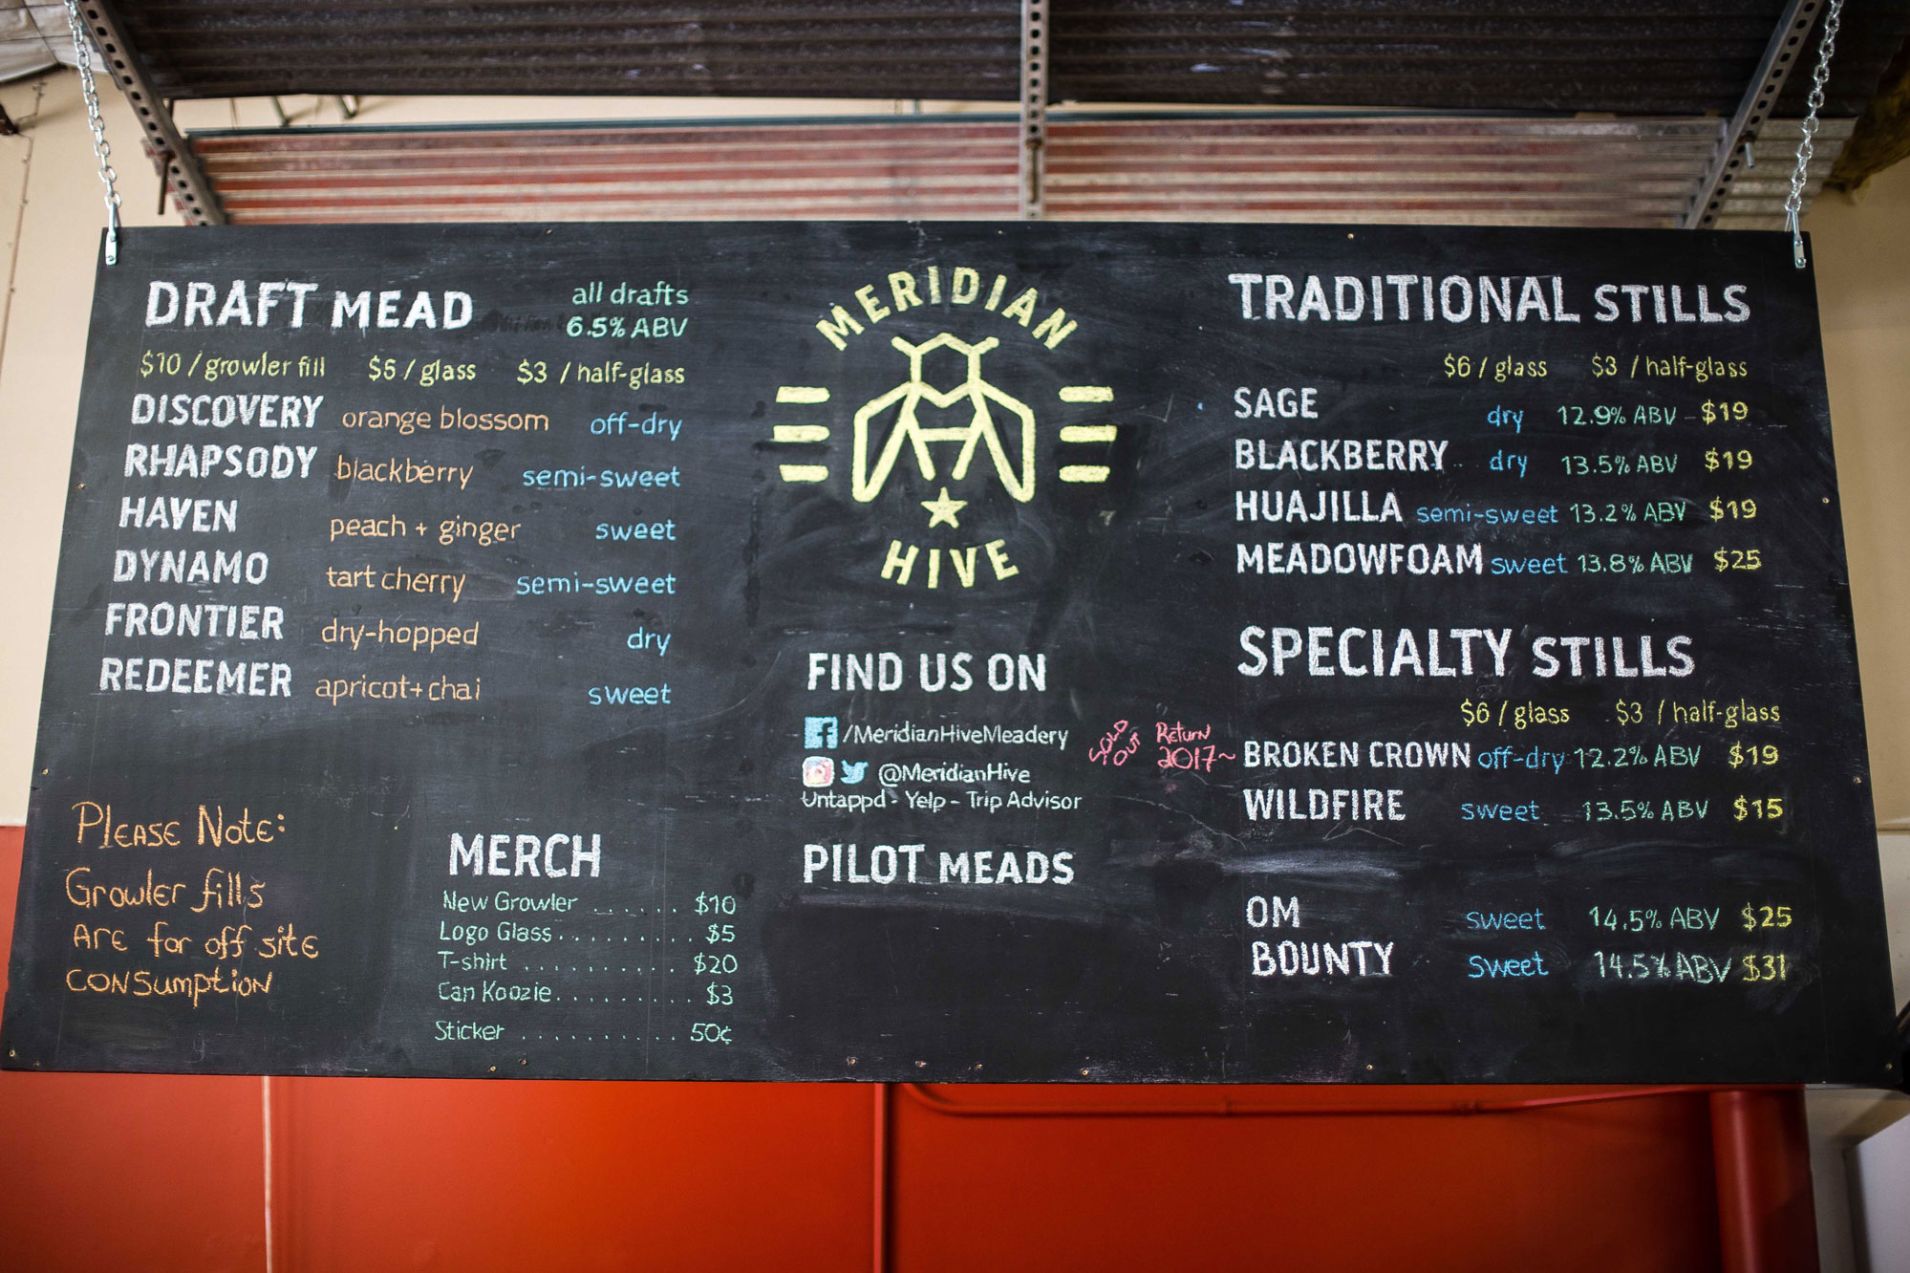 DRAFT MEAD all drafts
6.5% ABV
$10 / growler fill $6 / glass $3 / half-glass
DISCOVERY orange blossom off-dry
RHAPSODY blackberry semi-sweet
HAVEN peach + ginger sweet
DYNAMO tart cherry semi-sweet
FRONTIER dry-hopped dry
REDEEMER apricot + chai sweet
PLEASE NOTE:
Growler fills
ARE for off site
CONSumption
MERCH
New Growler ...... $10
Logo Glass .......... $5
T-shirt ........... $20
Can Koozie .......... $3
Sticker ........... 50¢
MERIDIAN
HIVE
FIND US ON
f /MeridianHiveMeadery
@MeridianHive
Untappd - Yelp - Trip Advisor
PILOT MEADS
TRADITIONAL STILLS
$6 / glass $3 / half-glass
SAGE dry 12.9% ABV $19
BLACKBERRY dry 13.5% ABV $19
HUAJILLA semi-sweet 13.2% ABV $19
MEADOWFOAM sweet 13.8% ABV $25
SPECIALTY STILLS
$6 / glass $3 / half-glass
SOLD OUT Return 2017~ BROKEN CROWN off-dry 12.2% ABV $19
WILDFIRE sweet 13.5% ABV $15
OM sweet 14.5% ABV $25
BOUNTY sweet 14.5% ABV $31